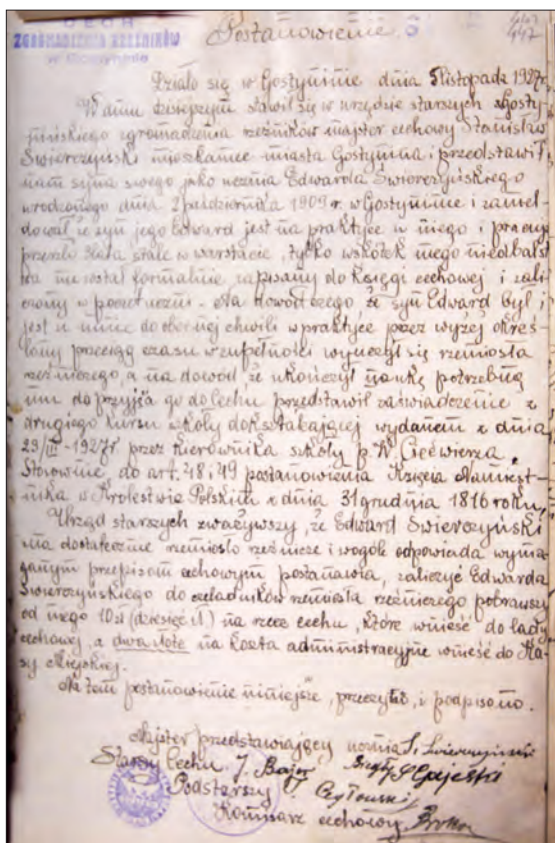 CECH
ZGROMADZENIA RZEŹNIKÓW
w Gostyninie
Postanowienie
Działo się w Gostyninie dnia 5 listopada 1927r.
W dniu dzisiejszym stawił się w urzędzie starszych Gosty-
nińskiego zgromadzenia rzeźników majster cechowy Stanisław
Świerczyński mieszkaniec miasta Gostynina i przedstawił
nam syna swego jako ucznia Edwarda Świerczyńskiego
urodzonego dnia 2 października 1909 r. w Gostyninie i zamel-
dował, że syn jego Edward jest na praktyce u niego i pracuje
przeszło 3 lata stale w warstacie, tylko wskutek mego niedbalst
wa nie został formalnie zapisany do Księgi cechowej i zali
czony w poczet uczni. Na dowód czego, że syn Edward był i
jest u mnie do obecnej chwili w praktyce przez wyżej okreś
lony przeciąg czasu w zupełności wyuczył się rzemiosła
rzeźniczego, a na dowód, że ukończył naukę potrzebną
mu do przyjęcia go do Cechu przedstawił zaświadczenie z
drugiego kursu szkoły dokształcającej wydanem z dnia
29/III-1927r. przez kierownika szkoły p. W. Ćwiewierza.
Stosownie do art. 48 i 49 postanowienia Księcia Namiest-
nika w Królestwie Polskim z dnia 31 grudnia 1816 roku,
Urząd starszych zważywszy, że Edward Świerczyński
zna dostatecznie rzemiosło rzeźnicze i wogóle odpowiada wyma
ganym przepisom cechowym postanawia, zaliczyć Edwarda
Świerczyńskiego do czeladników rzemiosła rzeźniczego pobrawszy
od niego 10 zł (dziesięć zł.) na rzecz cechu, które wnieść do lady
cechowej, a dwa złote na koszta administracyjne wnieść do Ka-
sy Miejskiej.
Na tem postanowienie niniejsze, przeczytano, i podpisano.
Majster przedstawiający ucznia S. Świerczyński
Starszy Cechu J. Bajer
Podstarszy
Komisarz cechowy